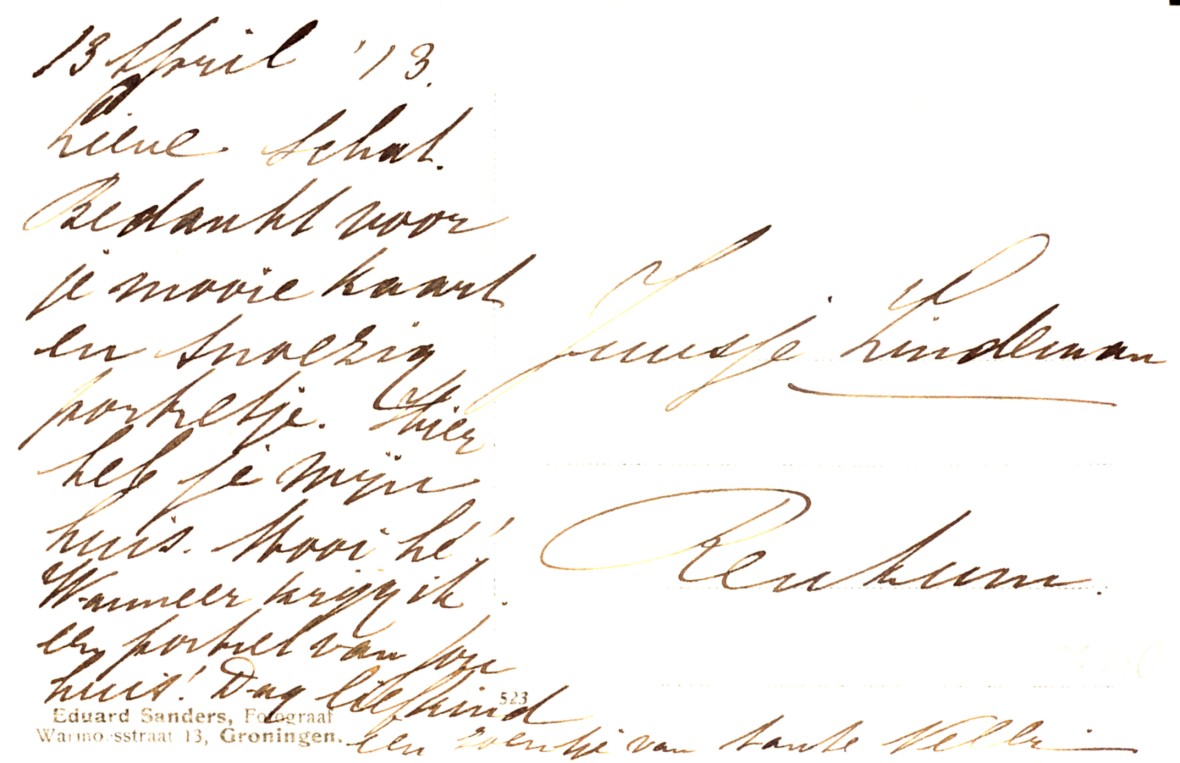 13 April '13.
Lieve schat.
Bedankt voor
je mooie kaart
en snoezig
portretje. Hier
heb je mijn
huis. Mooi hé!
Wanneer krijg ik
een portret van jou
huis! Dag liefkind
een zoentje van tante Nelli
Juusje Lindeman
Renkum.
523
Eduard Sanders, Fotograaf
Warmoesstraat 13, Groningen.